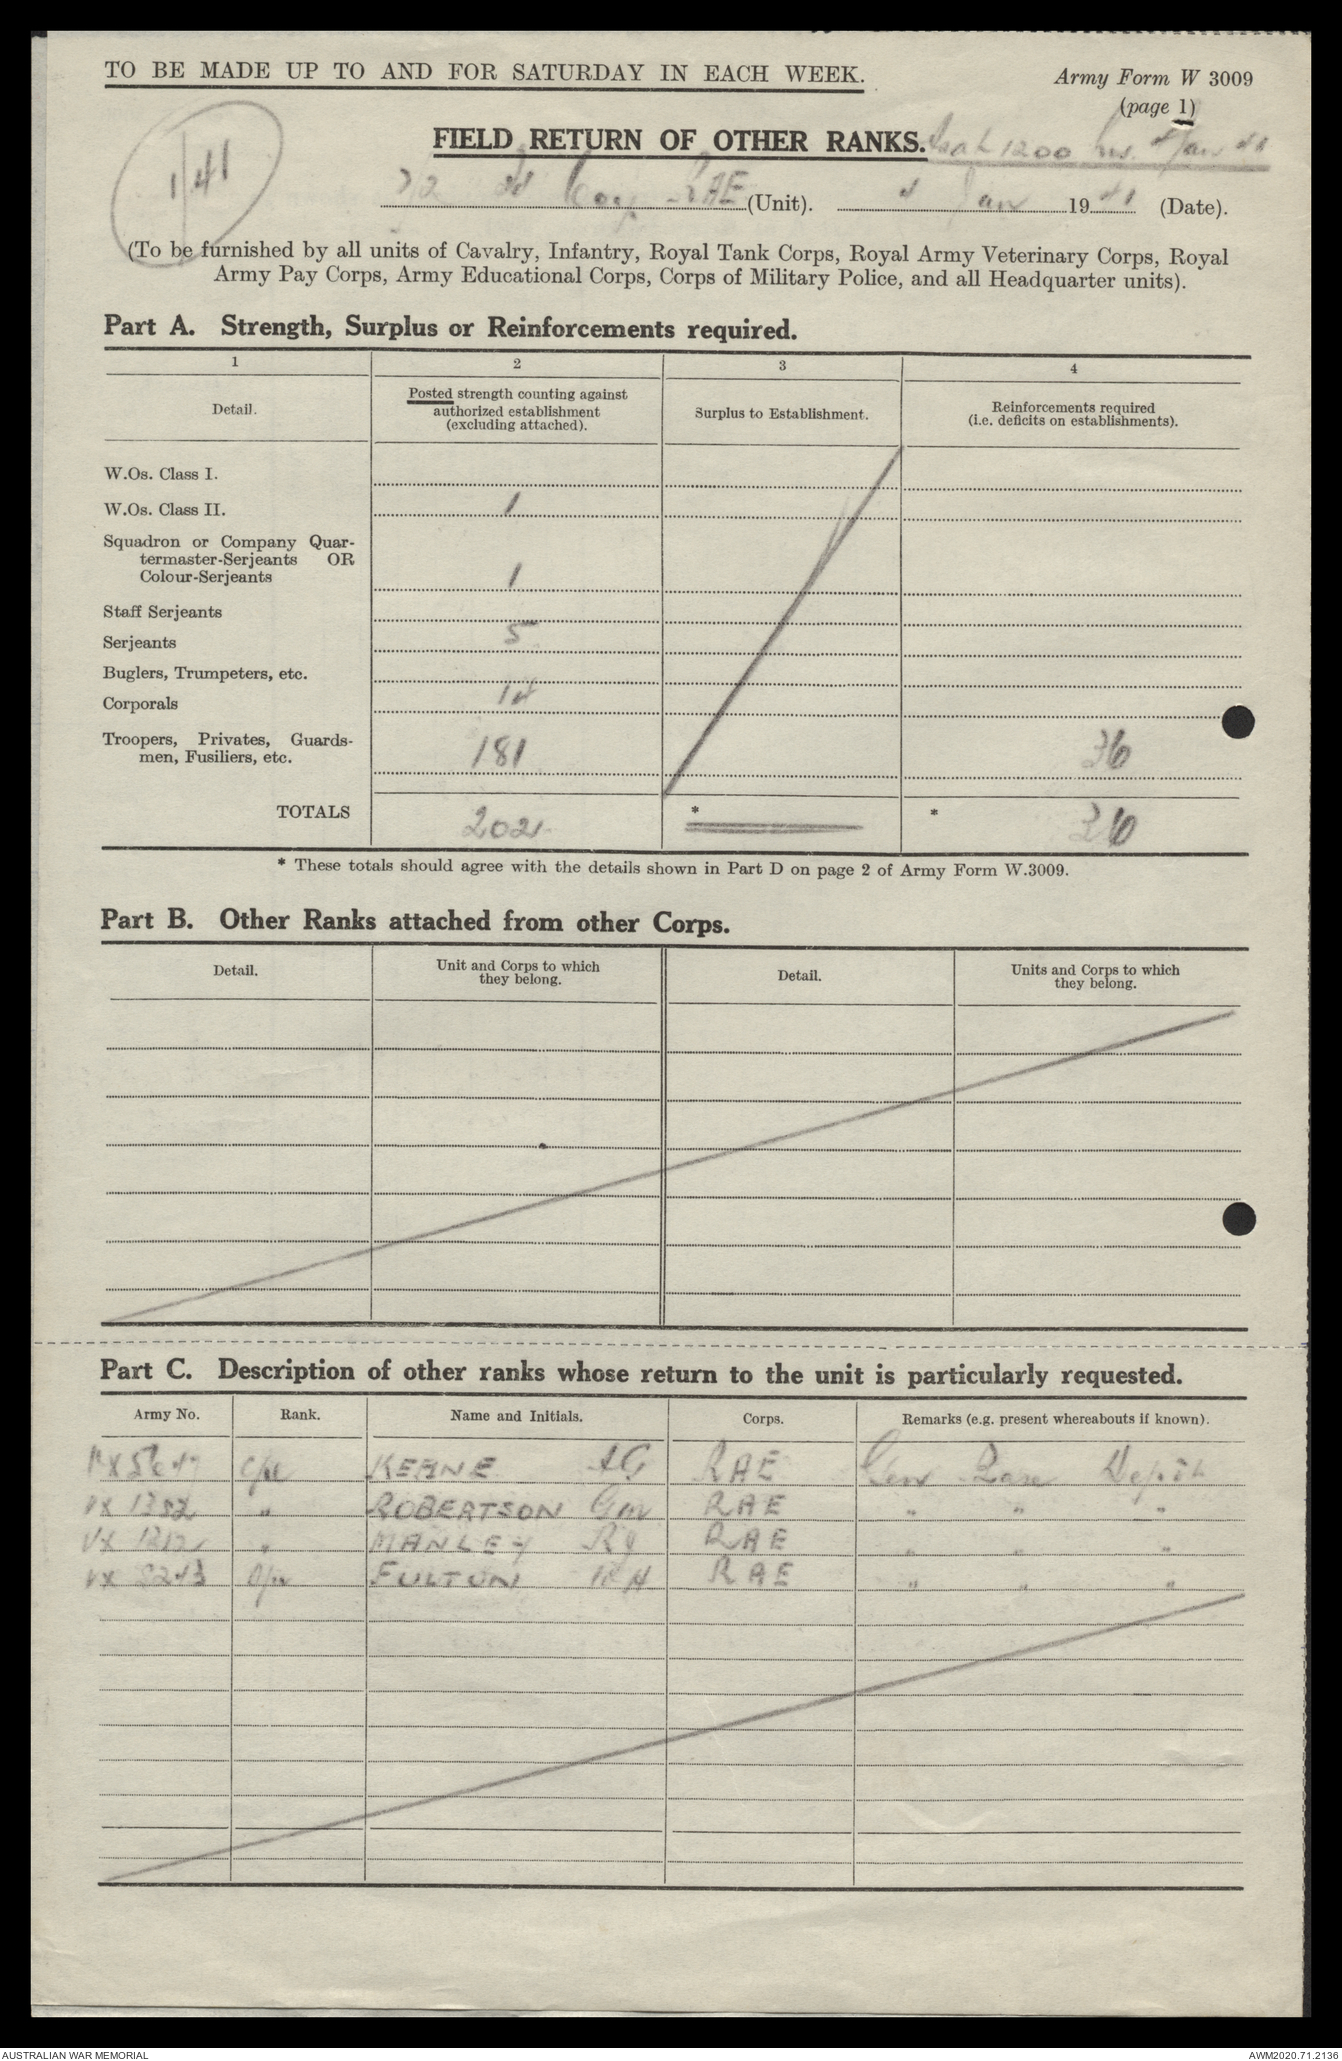 TO BE MADE UP TO AND FOR SATURDAY IN EACH WEEK.
Army Form W 3009
(page 1)
1/41
FIELD RETURN OF OTHER RANKS.
as at 1200 hrs. 4 Jan 41
Coy RAE (Unit). 4 Jan 1941 (Date).
(To be furnished by all units of Cavalry, Infantry, Royal Tank Corps, Royal Army Veterinary Corps, Royal
Army Pay Corps, Army Educational Corps, Corps of Military Police, and all Headquarter units).
Part A. Strength, Surplus or Reinforcements required.
1 2 3 4
Detail.
Posted strength counting against
authorized establishment
(excluding attached).
Surplus to Establishment.
Reinforcements required
(i.e. deficits on establishments).
W.Os. Class I.
W.Os. Class II. 1
Squadron or Company Quar-
termaster-Serjeants OR
Colour-Serjeants 1
Staff Serjeants
Serjeants 5
Buglers, Trumpeters, etc.
Corporals 14
Troopers, Privates, Guards-
men, Fusiliers, etc. 181 36
TOTALS 202 * * 36
* These totals should agree with the details shown in Part D on page 2 of Army Form W.3009.
Part B. Other Ranks attached from other Corps.
Detail.
Unit and Corps to which
they belong.
Detail.
Units and Corps to which
they belong.
Part C. Description of other ranks whose return to the unit is particularly requested.
Army No. Rank. Name and Initials. Corps. Remarks (e.g. present whereabouts if known).
Cpl KEANE AG RAE Gen Base Depot
VX 1382 " ROBERTSON GW RAE " " "
VX " MANLEY RJ RAE " " "
VX 8243 Spr FULTON RAE " " "
AUSTRALIAN WAR MEMORIAL
AWM2020.71.2136